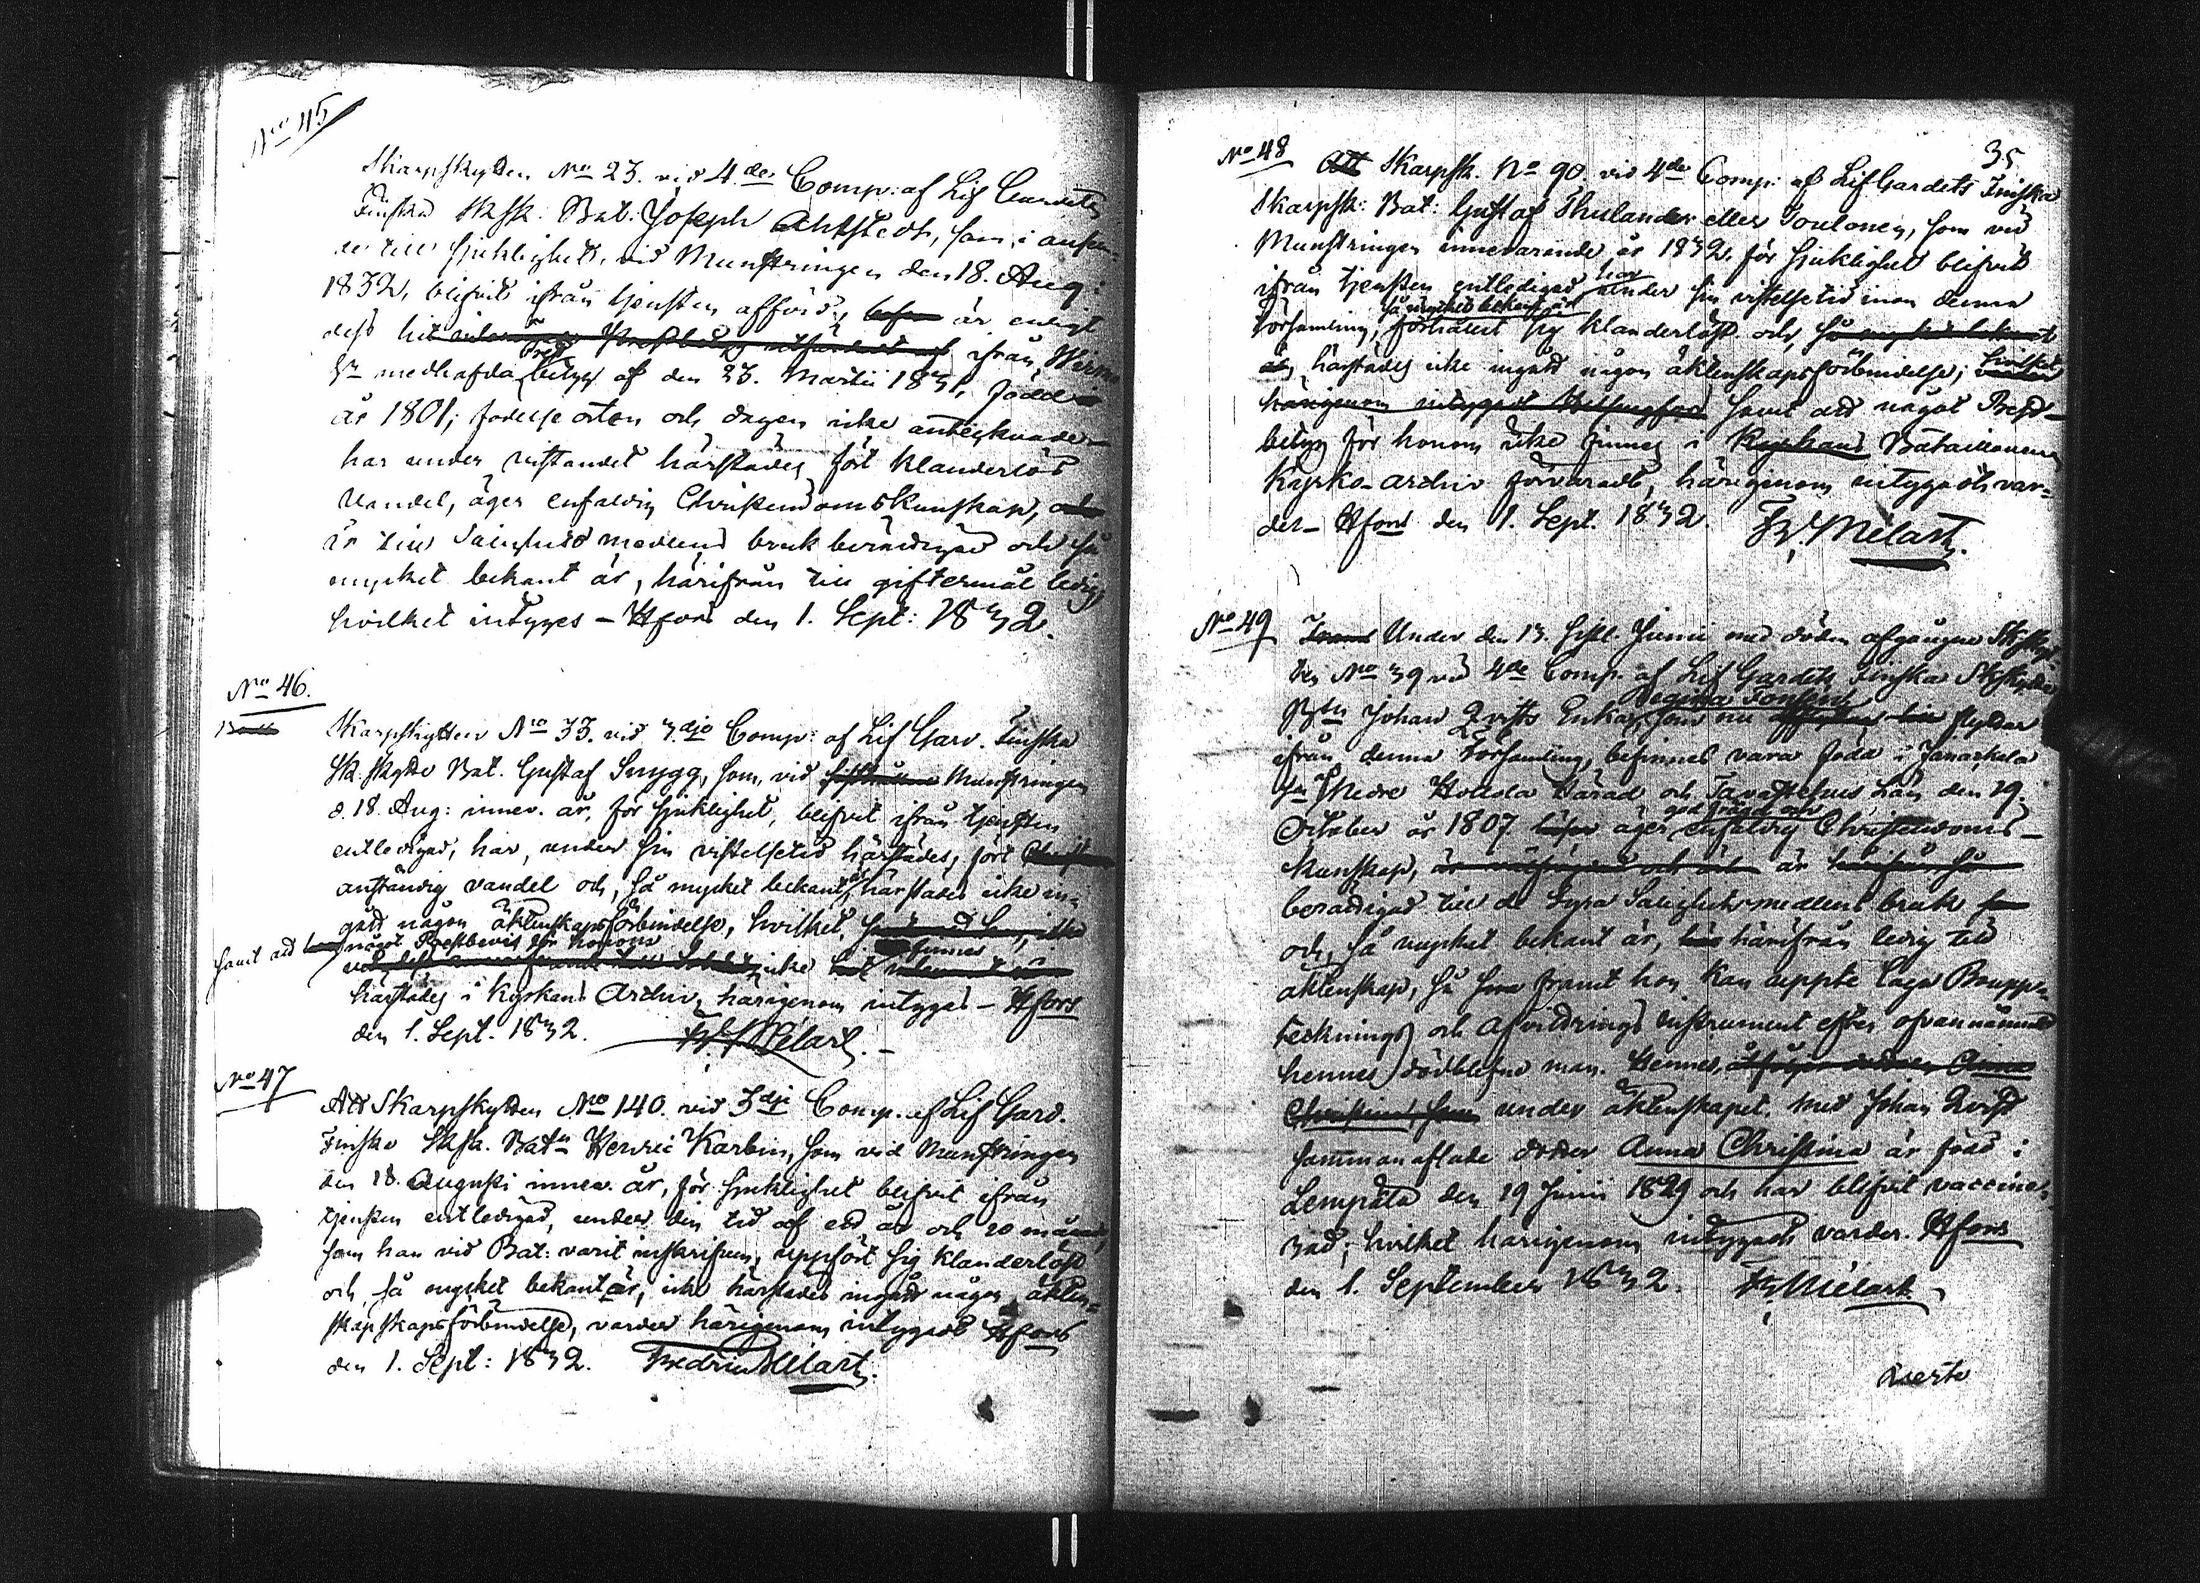 No 45
Skarpskytten No 23. vid 4.de Comp: af Lif Gardets
Finska Sksk. Bat. Joseph Achtstedt, som, i anseen-
de till sjuklighet, vid Munstringen den 18. Aug:
1832, blifvit ifrån tjensten afförd, är enligt
dess hit ifrån Wirmo
Sn medhafda Prest betyg af den 23. Martii 1831, född
år 1801; födelse orten och dagen icke antecknade
har under vistandet härstädes fört klanderlös
vandel, äger enfaldig Christendomskunskap,
är till Salighetsmedlens bruk berättigad och så
mycket bekant är, härifrån till giftermål ledig,
hvilket intygas – Hfors den 1. Sept: 1832.
No 46.
Skarpskytten No 33. vid 3.dje Comp: af Lif Gard. Finska
Sk. skytte Bat. Gustaf Snygg, som, vid Munstringen
d. 18. Aug: innev. år, för sjuklighet, blifvit ifrån tjensten
entledigad, har, under sin vistelsetid härstädes, fört
anständig vandel och, så mycket bekant är, härstädes icke in-
gått någon äktenskapsförbindelse, hvilket,
samt att något Prestbevis för honom
icke finnes
härstädes i Kyrkans Archiv, härigenom intygas – Hfors
den 1. Sept. 1832. Fr. Mélart.
No 47
Att Skarpskytten No 140. vid 3dje Comp. af Lif Gard.
Finska Sksk. Batn Henric Karbin, som vid Munstringen
den 18. Augusti innev. år, för sjuklighet blifvit ifrån
tjensten entledigad, under den tid af ett år och 10 månad,
som han vid Bat: varit inskrifven, uppfört sig klanderlöst
och, så mycket bekant är, icke härstädes ingått någon äkten-
skapsskapsförbindelse, varder härigenom intygadt Hfors
den 1. Sept: 1832. Fredric Mélart.
35
No 48
Att Skarpsk. No 90. vid 4de Comp: af Lif Gardets Finska
Skarpsk: Bat: Gustaf Thulander eller Toulonen, som vid
Munstringen innevarande år 1832, för sjuklighet blifvit
ifrån tjensten entledigad har under sin vistelsetid inom denna
så mycket bekant är
Församling, förhållit sig klanderlöst och, så mycket bekant
är, härstädes icke ingått någon äktenskapsförbindelse;
härigenom intygas Helsingfors samt att något Prest-
betyg för honom icke finnes i Kyrkans Bataillonens
Kyrko-archiv förvaradt, härigenom intygadt var-
der – Hfors den 1. Sept. 1832. Fr. Mélart.
No 49
Under den 13. sistl. Junii med döden afgångne Skskyt-
ten No 39 vid 4de Comp. af Lif Gardets Finska Skskytte
Regina
Btn Johan Qvists Enka, som nu flyttar
ifrån denna Församling, befinnes vara född i Janackala
Sn Nedre Hollola Härad och Tavastehus Län den 19.
god och
October år 1807 äger enfaldig Christendoms-
kunskap, är
berättigad till de dyra Salighetsmedlens bruk
och, så mycket bekant är, härifrån ledig till
äktenskap, så snart hon kan uppte laga Bouppen-
tecknings och Afvittrings instrument efter ofvannämnde
hennes dödblefne man. Hennes,
under äktenskapet med Johan Qvist
sammanaflade dotter Anna Christina är född i
Lempäla den 19 Junii 1829 och har blifvit vaccine-
rad; hvilket härigenom intygadt varder. Hfors
den 1. September 1832. Fr. Mélart